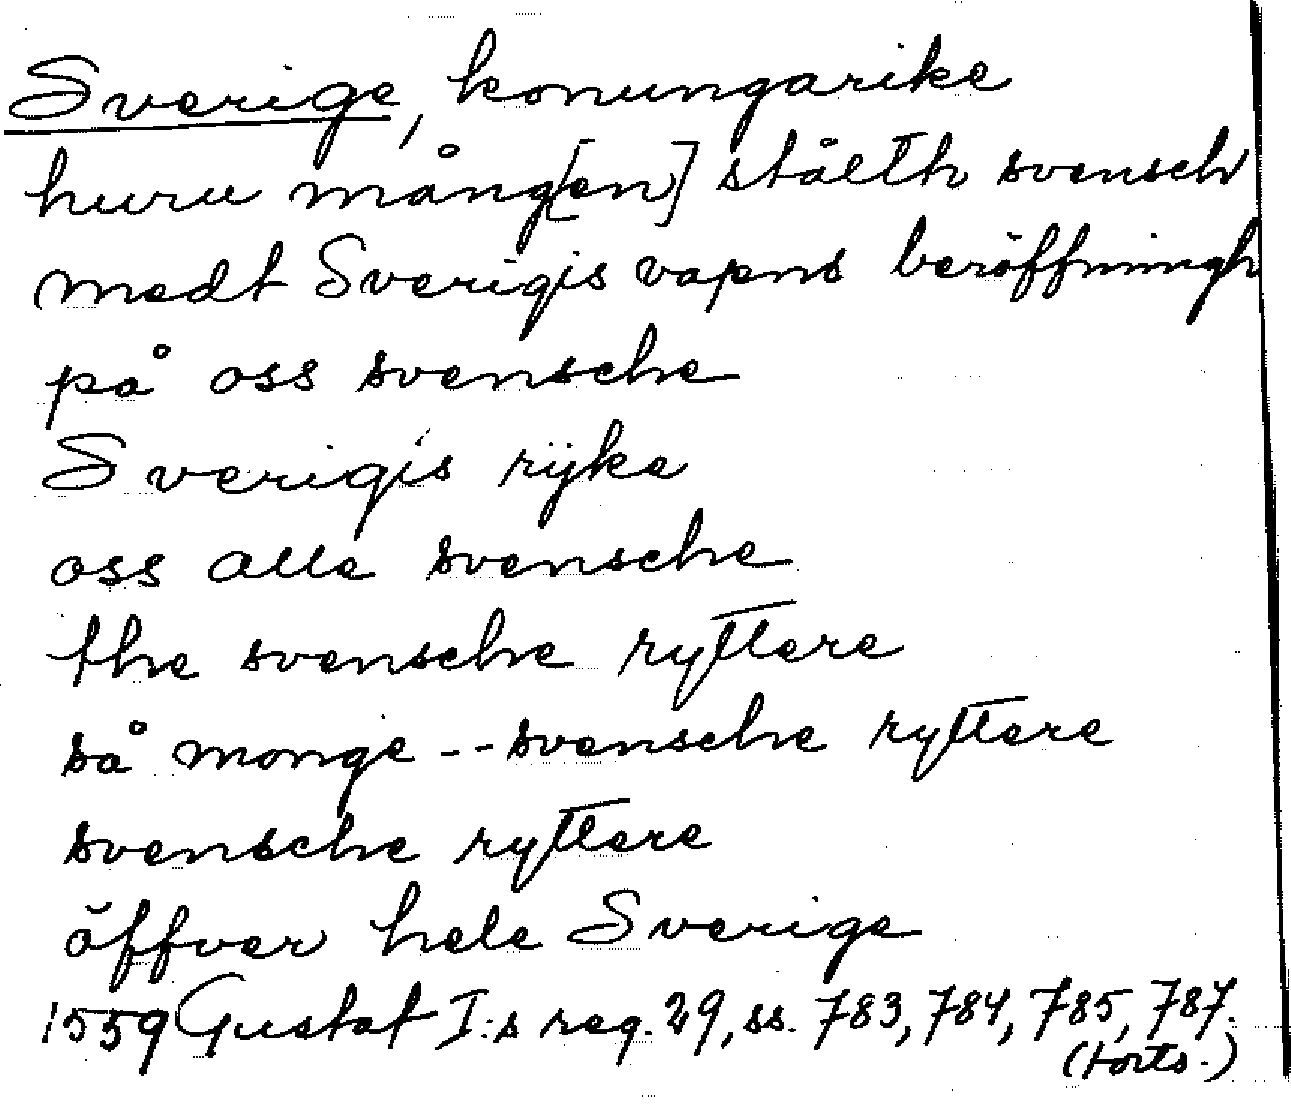 Sverige, konungarike
huru mång[en] stålth svensch
medt Sverigis vapns beröffningh
på oss svensche
Sverigis rijke
oss alle svensche
the svensche ryttere
så monge -- svensche ryttere
svensche ryttere
öffver hele Sverige
1559 Gustaf I:s reg. 29, ss. 783, 784, 785, 787.
(forts.)